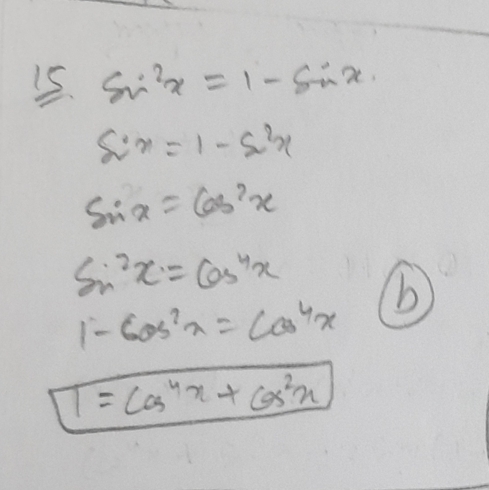 15. Sin²x = 1 - Sinx.
Sinx = 1 - S²x
Sinx = Cos²x
Sin²x = Cos⁴x
1 - Cos²x = Cos⁴x
(b)
1 = Cos⁴x + Cos²x